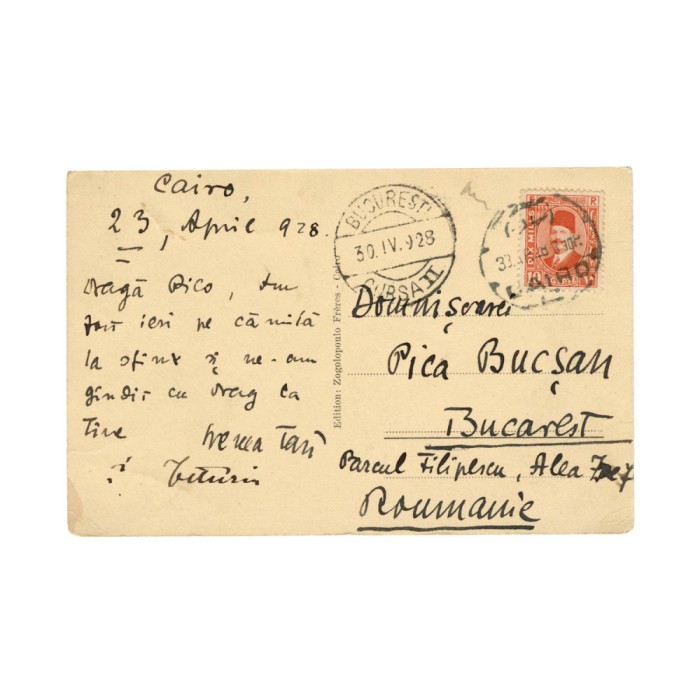 Cairo,
23, April 928.
Dragă Pico, Am
fost ieri pe cămilă
la sfinx și ne-am
gîndit cu drag la
tine
și
BUCUREȘTI
30.IV.928
CURSA II
DIX MILLS
CAIRO
Edition: Zogolopoulo Frères - Cairo
Domnișoarei
Pica Bucșan
Bucarest
Parcul Filipescu, Alea
Roumanie